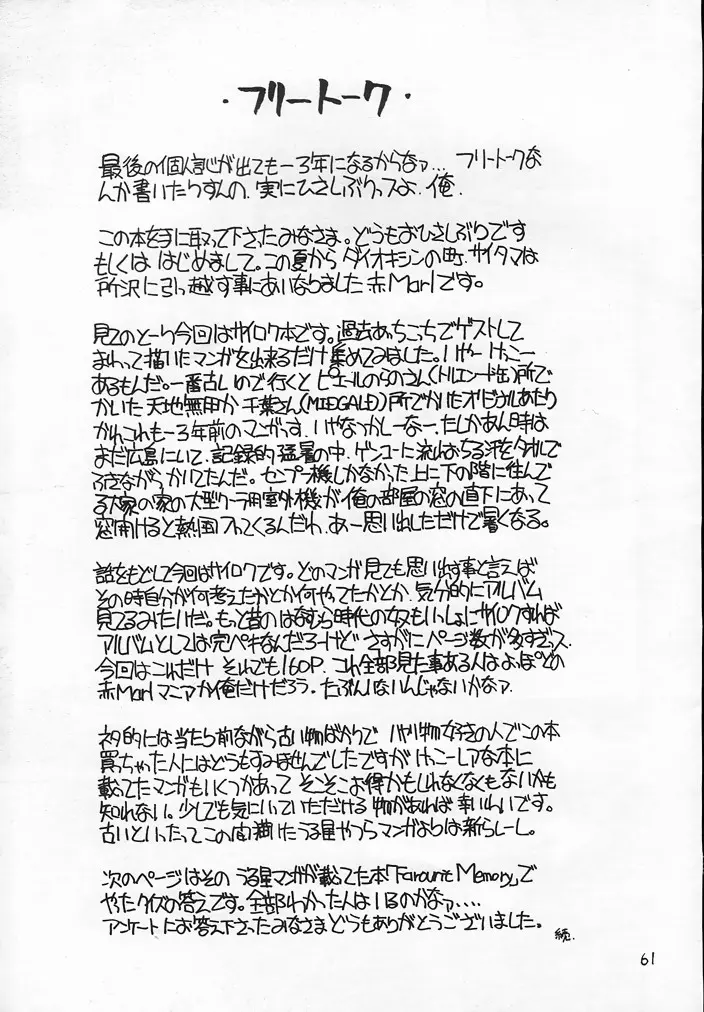 ・フリートーク・
最後の個人誌が出てもー3年になるからなァ… フリートークな
んか書いたりすんの、実にひさしぶりっスよ、俺、
この本を手に取って下さったみなさま。どうもおひさしぶりです
もしくは はじめまして。この夏から ダイオキシンの町、サイタマは
所沢に引っ越す事にあいなりました赤Marlです。
見てのとーり今回はサイロク本です。過去あっちこっちでゲストして
まわって描いたマンガを出来るだけ集めてみました。いやー けっこー
あるもんだ。一番古いので行くと ピエールのらのさん(トルエンドラム缶)所で
かいた 天地無用か 千葉さん(MIDGALD)所でかいたオリジナルあたり
かね、これも一3年前のマンガっす、いやなっかしーなー、たしかあん時は
まだ広島にいて、記録的猛暑の中、ゲンコーに流れおちる汗をタオルで
ふきながらかいてたんだ。センプー機しかなかった上に下の階に住んで
る大家の家の大型クーラー用室外機が俺の部屋の窓の直下にあって
窓開けると熱風入ってくるんだわ、あー思い出しただけで暑くなる。
話をもどして今回はサイロクです。どのマンガ見ても思い出す事と言えば
その時自分が何考えてたかとか何やってたかとか、気分的にアルバム
見てるみたいだ。もっと昔のはなむら時代の奴もいっしょにサイロクすれば
アルバムとしては完ペキなんだろーけど さすがにページ数が多すぎっス、
今回はこれだけ それでも160P、これ全部見た事ある人はよっぽどの
赤Marlマニアか俺だけだろう、たぶんいないんじゃないかなァ、
ネタ的には当たり前ながら古い物ばかりで ハヤリ物好きの人でこの本
買っちゃった人にはどうもすみませんでしたですが けっこーレアな本に
載ってたマンガもいくつかあって そこそこお得かもしれなくなくもないかも
知れない。少しでも気にいっていただける物があれば 幸いです。
古いといったって この間描いたうる星やつらマンガよりは新らしーし。
次のページはその うる星マンガが載ってた本「Favourite Memory」で
やったクイズの答えです。全部わかった人はいるのかなァ‥‥
アンケートにお答え下さったみなさまどうもありがとうございました。
続、
61